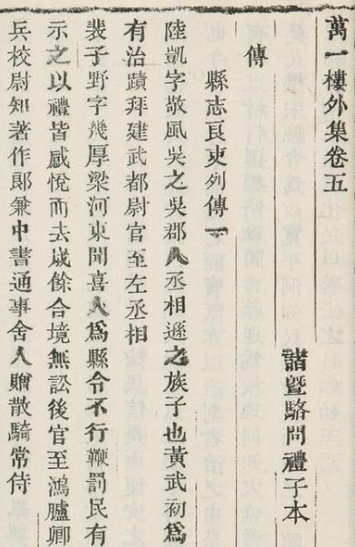 萬一樓外集卷五
諸暨駱問禮子本
傳
縣志良吏列傳一
陸凱字敬風吳之吳郡人丞相遜之族子也黃武初爲
有治蹟拜建武都尉官至左丞相
裴子野字幾厚梁河東聞喜人爲縣令不行鞭罰民有
示之以禮皆感悅而去歲餘合境無訟後官至鴻臚卿
兵校尉知著作郎兼中書通事舍人贈散騎常侍